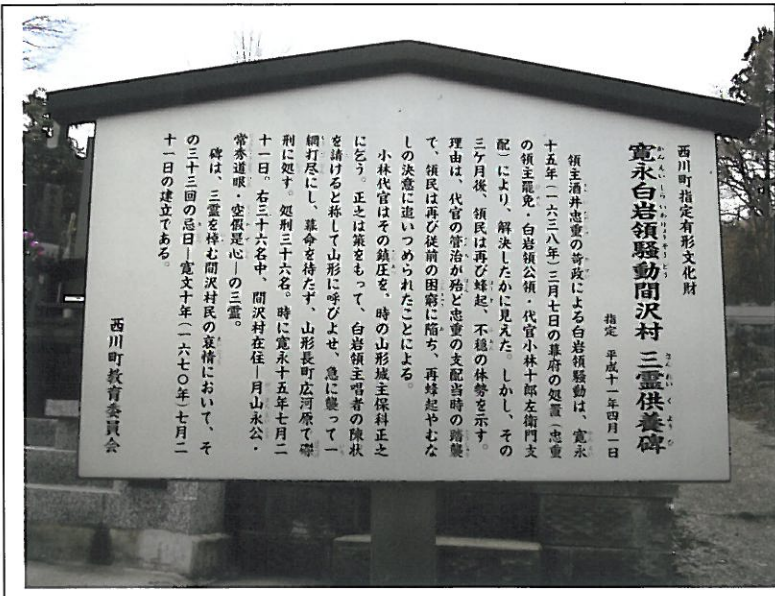 西川町指定有形文化財
寛永白岩領騒動間沢村 三霊供養碑
かんえいしらいわりょうそうどう さんれいくようひ
指定 平成十一年四月一日
領主酒井忠重の苛政による白岩領騒動は、寛永
十五年(一六三八年)三月七日の幕府の処置(忠重
の領主罷免・白岩領公領・代官小林十郎左衛門支
配)により、解決したかに見えた。しかし、その
三ケ月後、領民は再び蜂起、不穏の体勢を示す。
理由は、代官の管治が殆ど忠重の支配当時の踏襲
で、領民は再び従前の困窮に陥ち、再蜂起やむな
しの決意に追いつめられたことによる。
小林代官はその鎮圧を、時の山形城主保科正之
に乞う。正之は策をもって、白岩領主唱者の陳状
を請けると称して山形に呼びよせ、急に襲って一
網打尽にし、幕命を待たず、山形長町広河原で磔
刑に処す。処刑三十六名。時に寛永十五年七月二
十一日。右三十六名中、間沢村在住―月山永公・
常秀道眼・空假是心―の三霊。
碑は、三霊を悼む間沢村民の哀情において、そ
の三十三回の忌日―寛文十年(一六七〇年)七月二
十一日の建立である。
西川町教育委員会